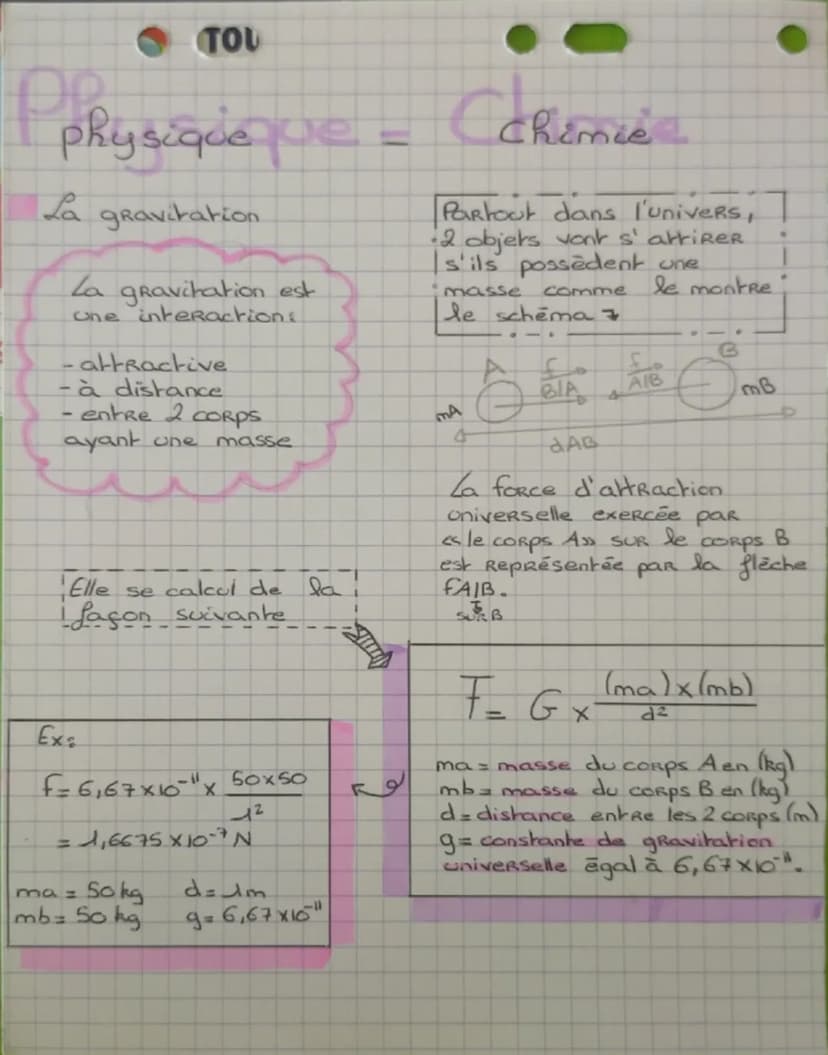 TOU
Physique = Chimie
physique chimie
La gravitation
La gravitation est
une interaction:
- attractive
- à distance
- entre 2 corps
ayant une masse
Partout dans l'univers,
2 objets vont s'attirer
s'ils possèdent une
masse comme le montre
le schéma
A f B/A f A/B B
mA mB
dAB
La force d'attraction
universelle exercée par
«le corps A» sur le corps B
est représentée par la flèche
fA/B.
sur B
Elle se calcul de la
façon suivante
F = G x (ma)x(mb)
d²
ma = masse du corps A en (kg)
mb = masse du corps B en (kg)
d = distance entre les 2 corps (m)
g = constante de gravitation
universelle égal à 6,67x10⁻¹¹.
Ex:
f = 6,67x10⁻¹¹ x 50x50
1²
= 1,6675 x10⁻⁷ N
ma = 50 kg d = 1m
mb = 50 kg g = 6,67 x10⁻¹¹